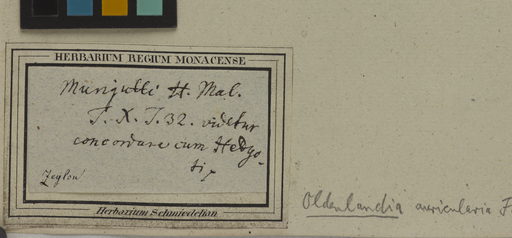 HERBARIUM REGIUM MONACENSE
Murigutti H. Mal.
T. X. T. 32. videtur
concordare cum Hedyo-
ti,
Zeylon
Herbarium Schmiedelian
Oldenlandia auricularia F.